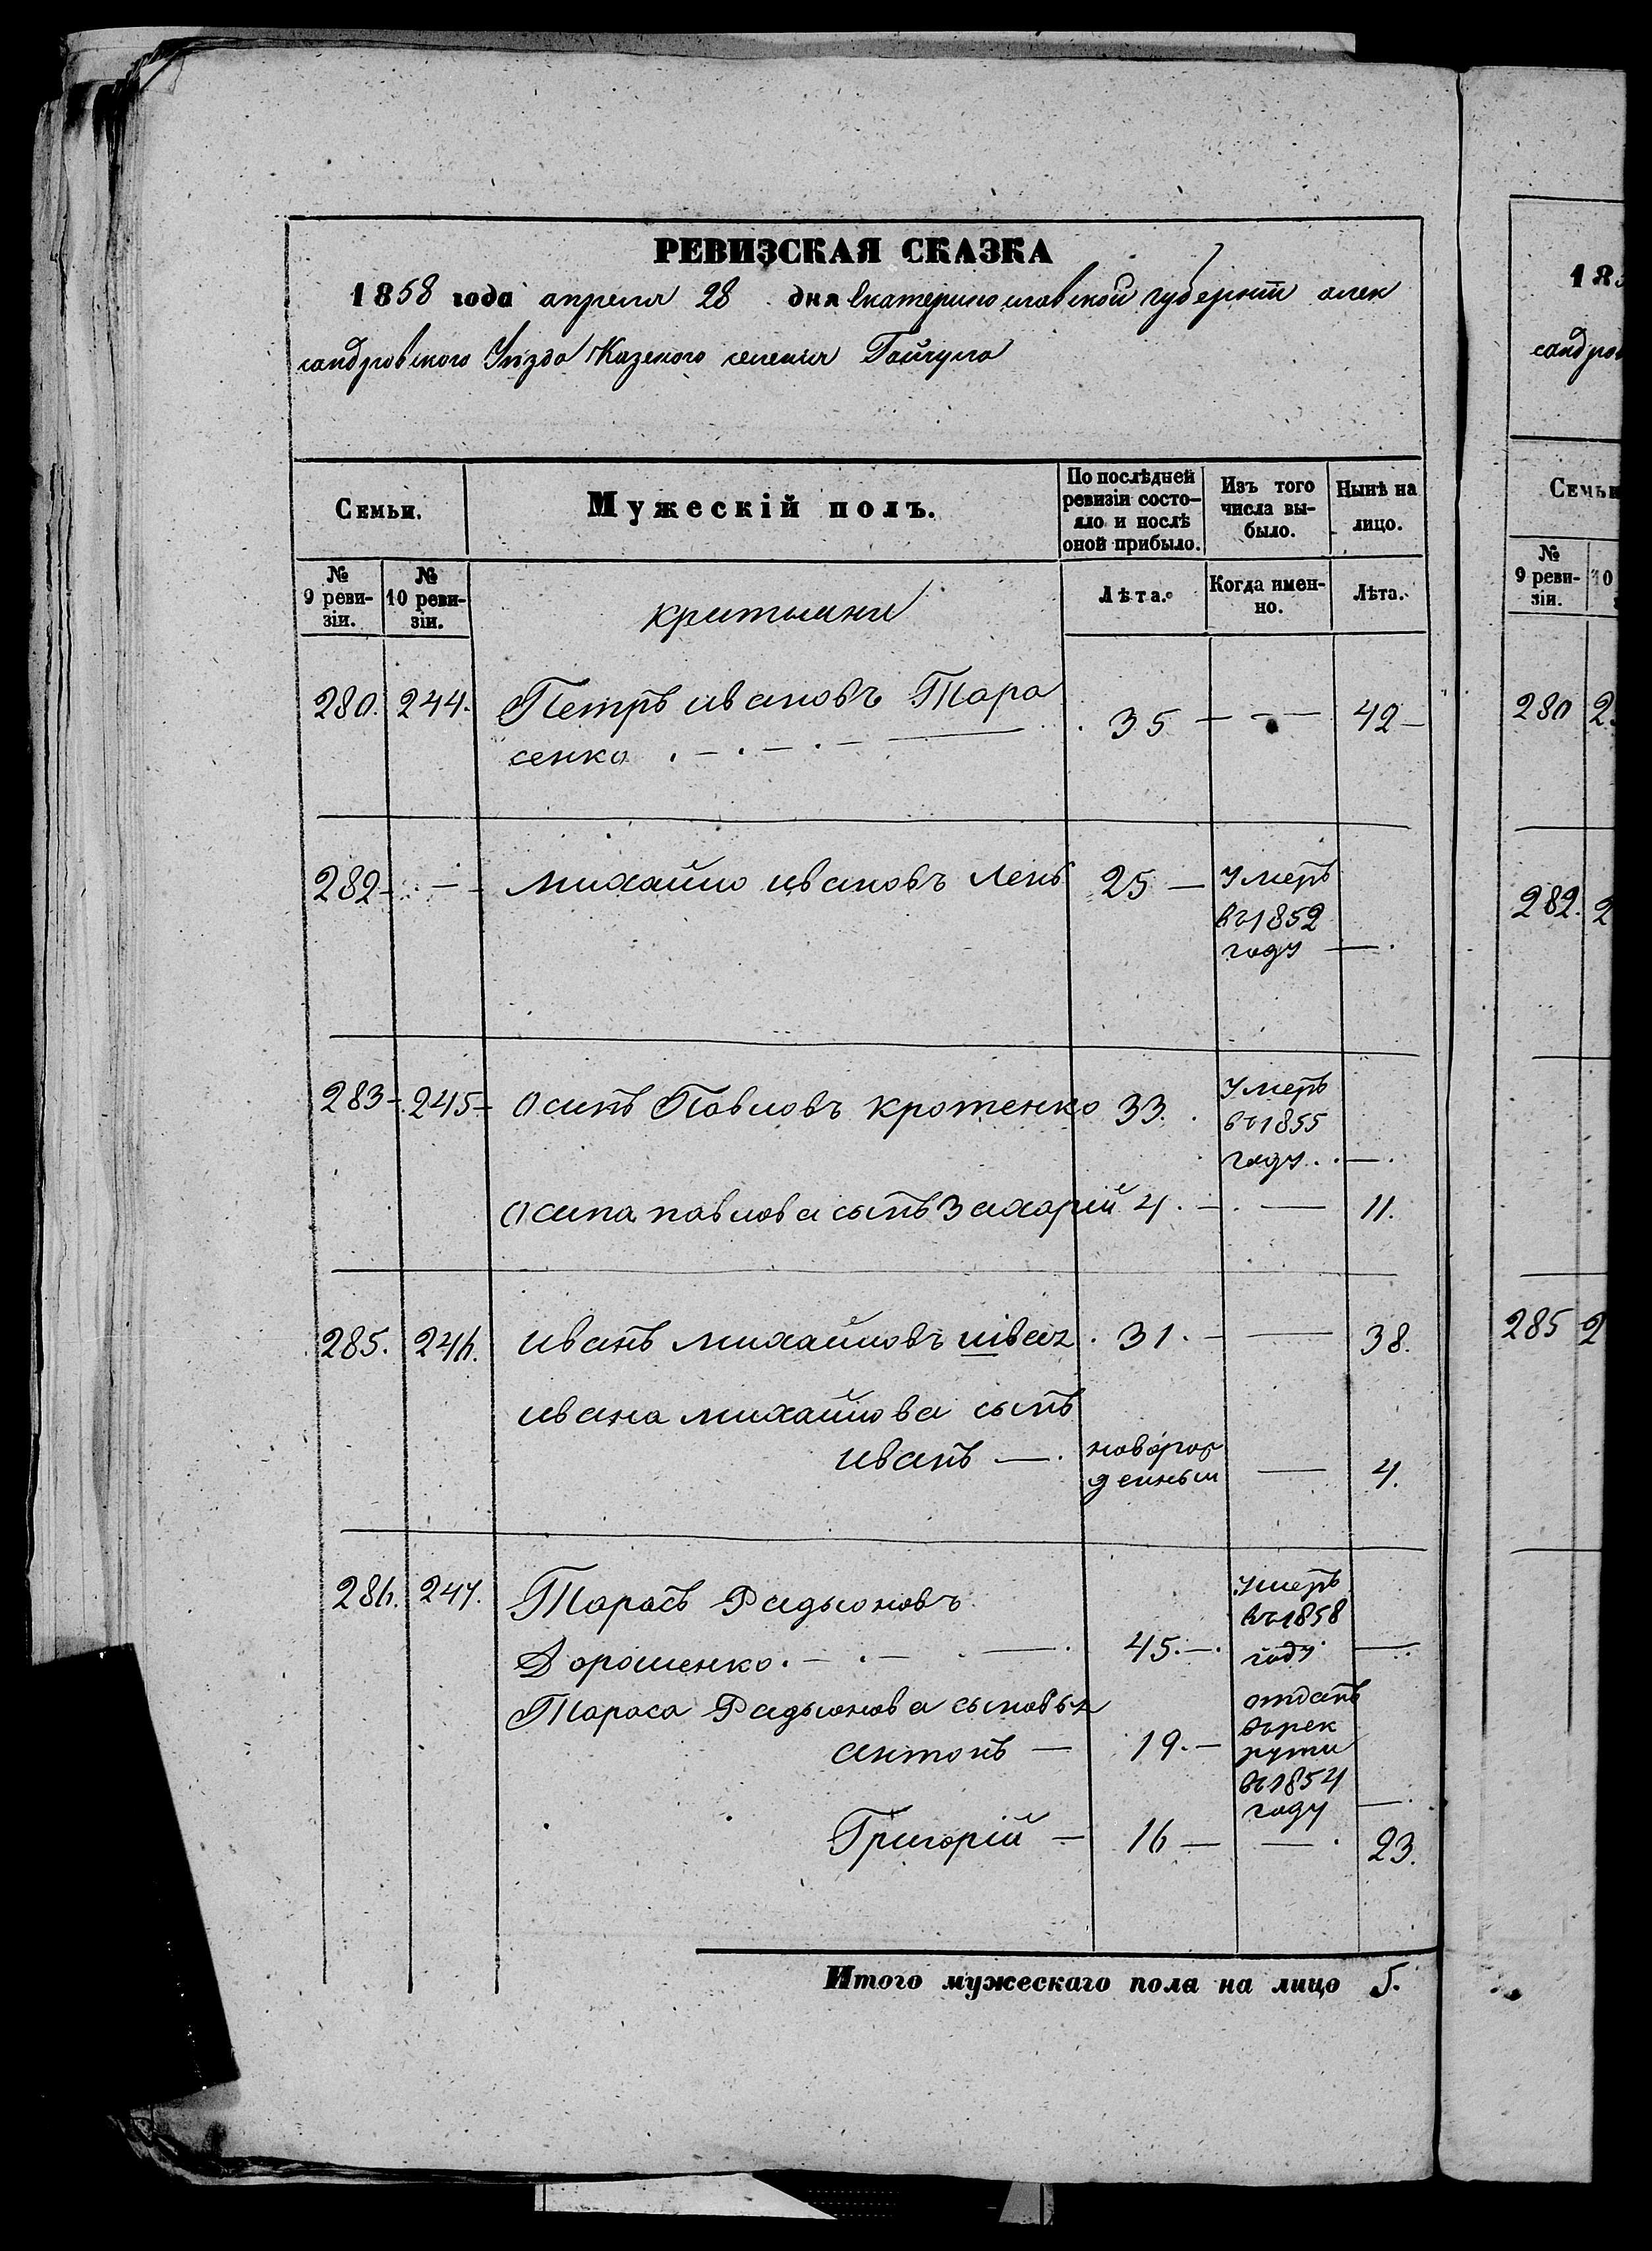 РЕВИЗСКАЯ СКАЗКА
1858 года апреля 28 дня Екатеринославской губернии алек
сандровского Уезда Казеного селения Гайчула
Семьи.
Мужескій полъ.
По послѣдней ревизіи состояло и послѣ оной прибыло.
Изъ того числа выбыло.
Нынѣ на лицо.
№ 9 ревизіи.
№ 10 ревизіи.
Лѣта.
Когда именно.
Лѣта.
280. 244. Петръ ивановъ Тара 35 — — 42 —
сенко
282 — — михайло ивановъ Лень 25 — Умеръ
въ 1852
году —
283 — 245 — Осипъ Павловъ кротенко 33. Умеръ
въ 1855
году. —
Осипа павлова сынъ Захарій 4. — — 11.
285. 246. иванъ михайловъ швец 31. — — 38.
ивана михайлова сынъ
иванъ — новорож
денный — 4.
286. 247. Тарасъ Радыоновъ Умеръ
въ 1858
Дорошенко. 45. — году —
Тараса Радыонова сыновья
антонъ — 19. — отданъ
въ рек
рути
въ 1854
году —
Григорій — 16 — — 23.
Итого мужескаго пола на лицо 5.
185
сандров
Семьи
№ 9 ревизіи.
10
280 2
282. 2
285 2